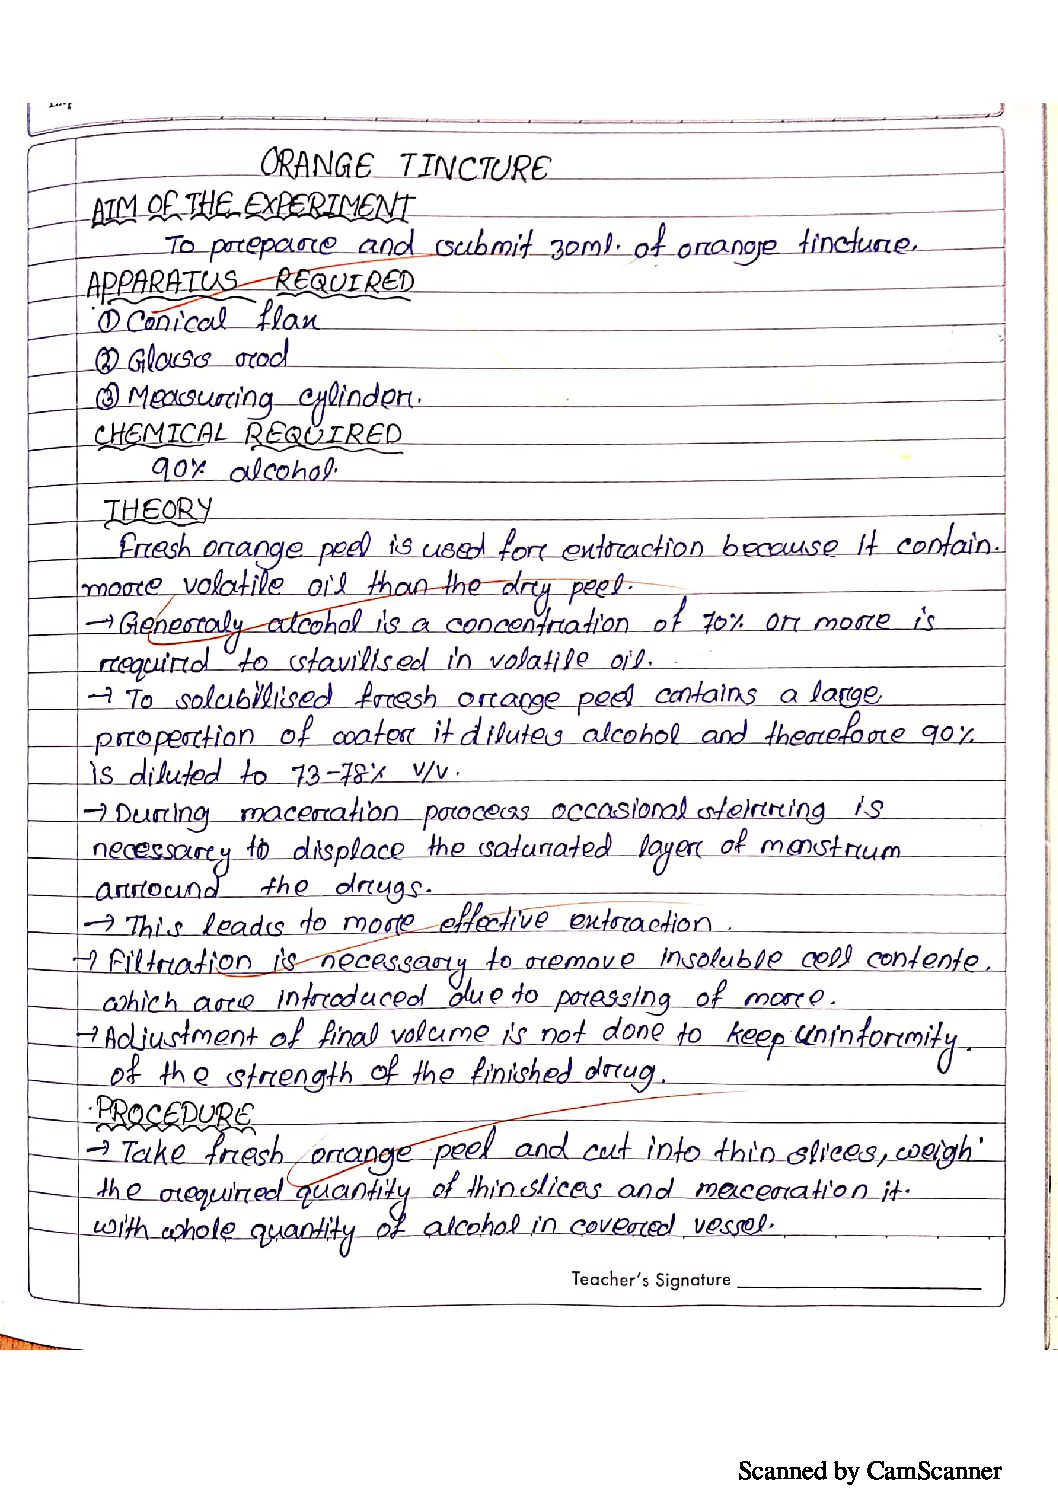 ORANGE TINCTURE
AIM OF THE EXPERIMENT
To prepare and submit 30ml. of orange tincture.
APPARATUS REQUIRED
① Conical flax
② Glass rod
③ Measuring cylinder.
CHEMICAL REQUIRED
90% alcohol.
THEORY
Fresh orange peel is used for extraction because it contain.
more volatile oil than the dry peel.
→ Generaly alcohol is a concentration of 70% or more is
required to stavilised in volatile oil.
→ To solubilised fresh orange peel contains a large
proportion of water it dilutes alcohol and therefore 90%
is diluted to 73-78% v/v.
→ During maceration process occasional steirring is
necessary to displace the saturated layer of menstrium
arround the drugs.
→ This leads to more effective extraction.
→ Filtration is necessary to remove insoluble cell contente.
which are introduced due to pressing of more.
→ Adjustment of final volume is not done to keep uninformity.
of the strength of the finished drug.
PROCEDURE
→ Take fresh orange peel and cut into thin slices, weigh
the required quantity of thin slices and maceration it.
with whole quantity of alcohol in covered vessel.
Teacher's Signature
Scanned by CamScanner